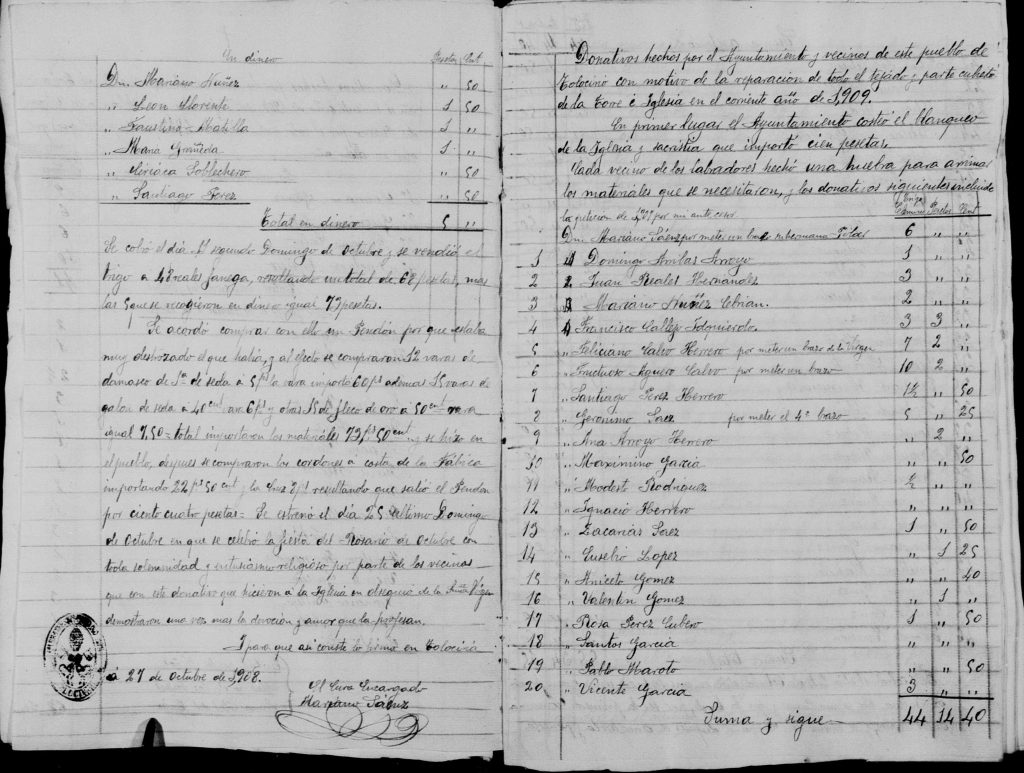 En dinero
Pesetas Cent
Dn. Mariano Nuñez " 50
" Leon Llorente 1 50
" Faustino Matilla 1 "
" Maria Grañeda 1 "
" Ciriaca Soblechero " 50
" Santiago Perez " 50
Total en dinero 5 "
Se cobró el día 11 segundo Domingo de Octubre y se vendió el
trigo a 48 reales fanega, resultando un total de 68 pesetas, mas
las 5 que se recogieron en dinero igual 73 pesetas.
Se acordó comprar con ello un Pendón por que estaba
muy destrozado el que había, y al efecto se compraron 12 varas de
damasco de 1ª de seda a 5 pts la vara importó 60 pts ademas 15 varas de
galon de seda a 40 cent vara 6 pts y otras 15 de fleco de oro a 50 cent vara
igual 7,50 = total importaron los materiales 73 pts 50 cent y se hizo en
el pueblo, despues se compraron los cordones á costa de la Fábrica
importando 22 pts 50 cent y la Cruz 8 pts resultando que salió el Pendon
por ciento cuatro pesetas = Se estrenó el día 25 ultimo Domingo
de Octubre en que se celebró la fiesta del Rosario de Octubre con
toda solemnidad y entusiasmo religioso por parte de los vecinos
que con este donativo que hicieron á la Iglesia en obsequio de la Virgen
demostraron una vez mas la devoción y amor que la profesan.
I para que asi conste lo firmo en Tolocirio
á 27 de Octubre de 1,908.
El Cura Encargado
Mariano Sáenz
Donativos hechos por el Ayuntamiento y vecinos de este pueblo de
Tolocirio con motivo de la reparación de todo el tejado y parte cubierta
de la Torre é Iglesia en el corriente año de 1,909.
En primer lugar el Ayuntamiento costeó el blanqueo
de la Iglesia y sacristia que importó cien pesetas.
Cada vecino de los labradores hechó una huebra para arrimar
los materiales que se necesitaron, y los donativos siguientes incluido
la peticion de por mi ante cesor
Trigo
Pesetas Cent
Dn. Mariano Sáenz por meter un bazo Pilar 6 " "
1 " Domingo Arribas Arroyo 1 " "
2 " Juan Reales Hernandez 3 " "
3 " Mariano Nuñez Cebrian. 2 " "
4 " Francisco Callejo Izquierdo. 3 3 "
5 " Feliciano Calvo Herrero por meter un bazo de la Virgen 7 2 "
6 " Fructuoso Aguero Calvo por meter un bazo 10 2 "
7 " Santiago Perez Herrero 1½ " 50
8 " Geronimo Saez por meter el 4º bazo 5 " 25
9 " Ana Arroyo Herrero " 2 "
10 " Maximino Garcia " " 50
11 " Modesto Rodriguez ½ " "
12 " Ignacio Herrero " " "
13 " Zacarias Perez 1 " 50
14 " Eusebio Lopez " 1 25
15 " Aniceto Gomez " " 40
16 " Valentin Gomez " 1 "
17 " Rosa Perez Cubero 1 " 50
18 " Santos Garcia " " "
19 " Pablo Maroto " " 50
20 " Vicente Garcia 3 " "
Suma y sigue 44 14 40